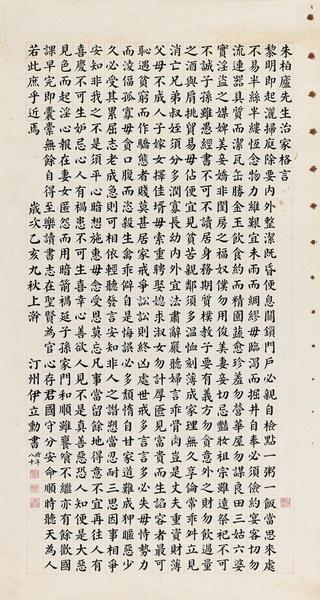 朱柏廬先生治家格言
黎明即起灑掃庭除要內外整潔既昏便息關鎖門戶必親自檢點一粥一飯當思來處
不易半絲半縷恆念物力維艱宜未雨而綢繆毋臨渴而掘井自奉必須儉約宴客切勿
流連器具質而潔瓦缶勝金玉飲食約而精園蔬愈珍羞勿營華屋勿謀良田三姑六婆
實淫盜之媒婢美妾嬌非閨房之福奴僕勿用俊美妻妾切忌豔妝祖宗雖遠祭祀不可
不誠子孫雖愚經書不可不讀居身務期質樸教子要有義方勿貪意外之財勿飲過量
之酒與肩挑貿易毋佔便宜見貧苦親鄰須多溫恤刻薄成家理無久享倫常乖舛立見
消亡兄弟叔姪須分多潤寡長幼內外宜法肅辭嚴聽婦言乖骨肉豈是丈夫重資財薄
父母不成人子嫁女擇佳壻毋索重聘娶媳求淑女勿計厚匳見富貴而生諂容者最可
恥遇貧窮而作驕態者賤莫甚居家戒爭訟訟則終凶處世戒多言言多必失毋恃勢力
而凌偪孤寡毋貪口腹而恣殺生禽乖僻自是悔誤必多頹惰自甘家道難成狎暱惡少
久必受其累屈志老成急則可相依輕聽發言安知非人之譖愬當忍耐三思因事相爭
安知非我之不是須平心暗想施惠毋念受恩莫忘凡事當留餘地得意不宜再往人有
喜慶不可生妒忌心人有禍患不可生喜幸心善欲人見不是真善惡恐人知便是大惡
見色而起淫心報在妻女匿怨而用暗箭禍延子孫家門和順雖饔飧不繼亦有餘歡國
課早完即囊橐無餘自得至樂讀書志在聖賢為官心存君國守分安命順時聽天為人
若此庶乎近焉 歲次乙亥九秋上澣 汀州伊立勳書 時年八十